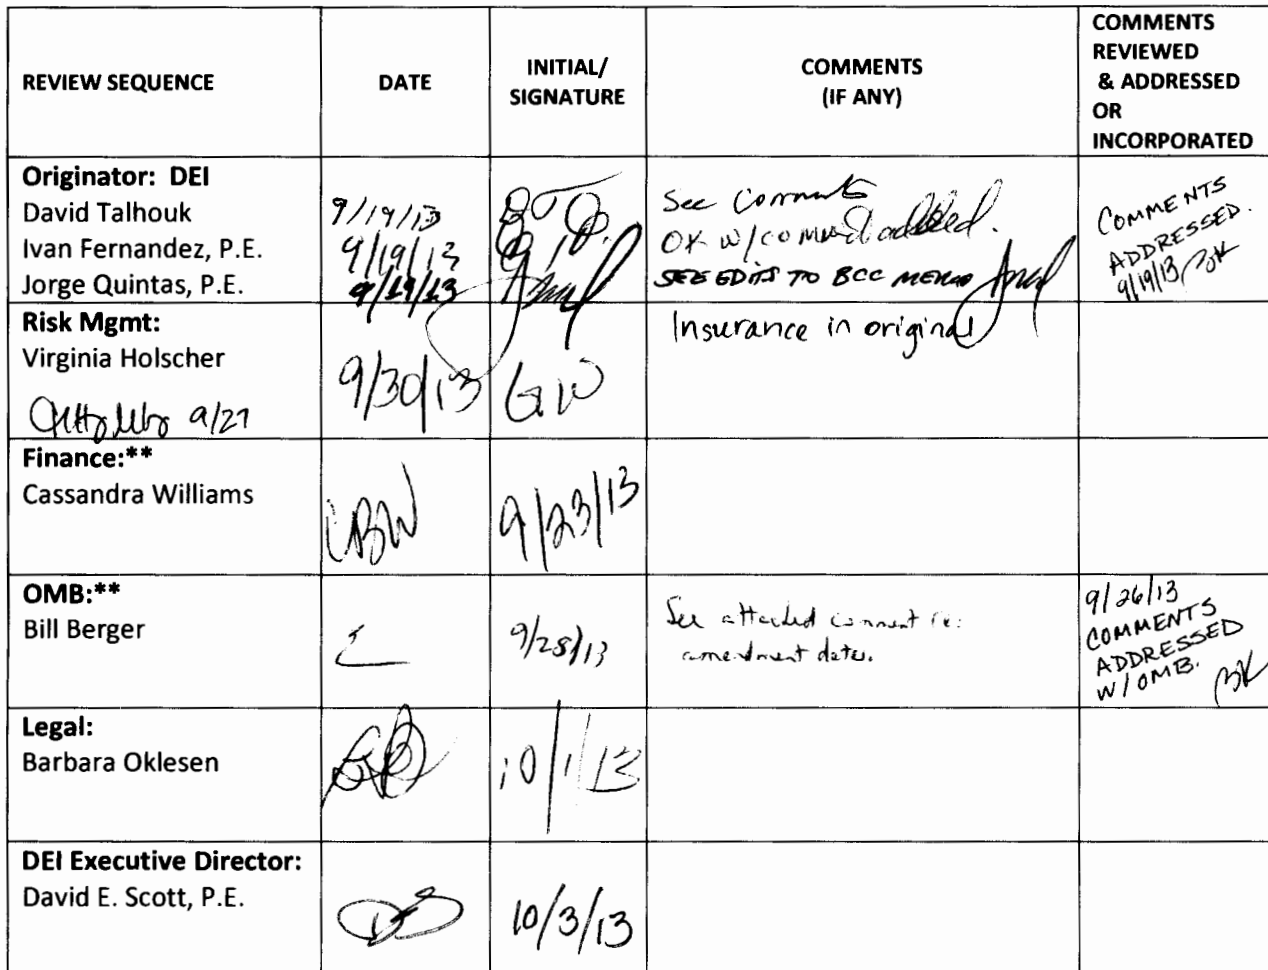 REVIEW SEQUENCE
DATE
INITIAL/
SIGNATURE
COMMENTS
(IF ANY)
COMMENTS
REVIEWED
& ADDRESSED
OR
INCORPORATED
Originator: DEI
David Talhouk
Ivan Fernandez, P.E.
Jorge Quintas, P.E.
9/19/13
9/19/13
9/19/13
See Comments
OK w/comment added.
SEE EDITS TO BCC MEMO
COMMENTS
ADDRESSED.
9/19/13 BK
Risk Mgmt:
Virginia Holscher
9/27
9/30/13
GW
Insurance in original
Finance:**
Cassandra Williams
CBW
9/23/13
OMB:**
Bill Berger
9/25/13
See attached comment re:
amendment dates.
9/26/13
COMMENTS
ADDRESSED
W/OMB.
BK
Legal:
Barbara Oklesen
10/1/13
DEI Executive Director:
David E. Scott, P.E.
DS
10/3/13